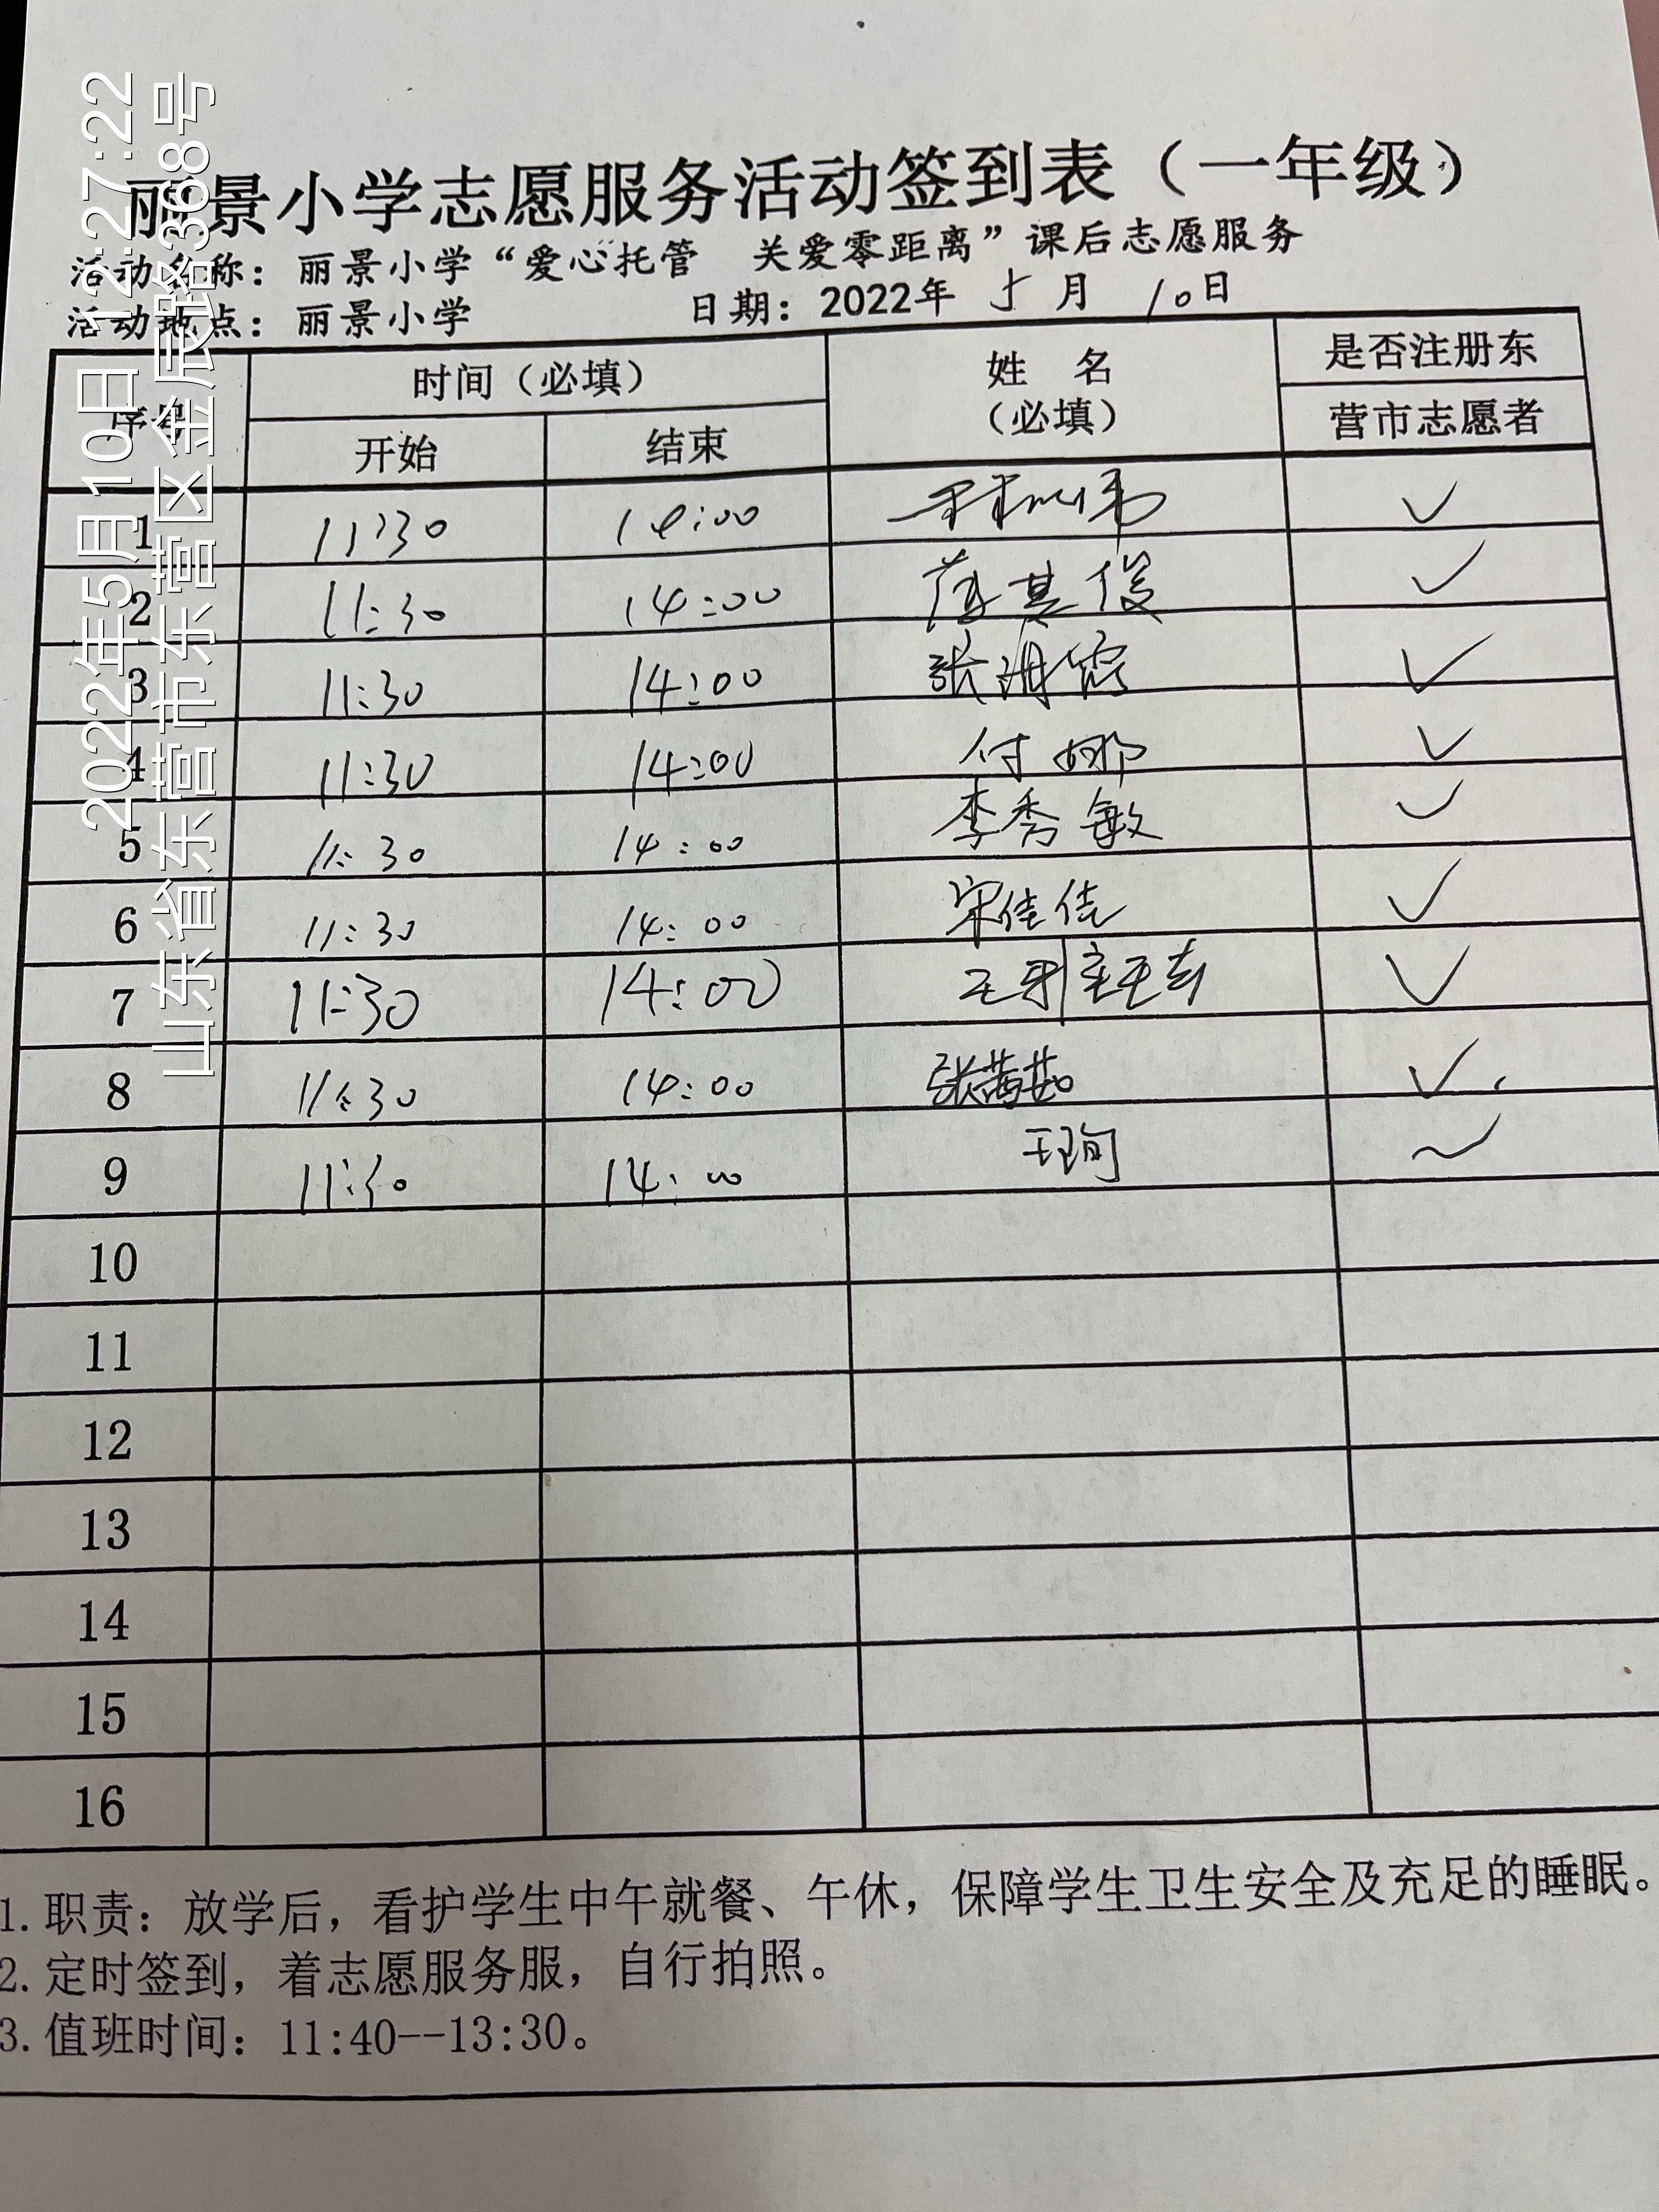 丽景小学志愿服务活动签到表（一年级）
活动名称：丽景小学“爱心托管 关爱零距离”课后志愿服务
活动地点：丽景小学 日期：2022年 5 月 10日
序号 时间（必填） 姓 名（必填） 是否注册东营市志愿者
开始 结束
1 11:30 14:00 ✓
2 11:30 14:00 薛其俊 ✓
3 11:30 14:00 张 ✓
4 11:30 14:00 付娜 ✓
5 11:30 14:00 李秀敏 ✓
6 11:30 14:00 宋佳佳 ✓
7 11:30 14:00 ✓
8 11:30 14:00 张茜茹 ✓
9 11:30 14:00 王珣 ✓
10
11
12
13
14
15
16
1.职责：放学后，看护学生中午就餐、午休，保障学生卫生安全及充足的睡眠。
2.定时签到，着志愿服务服，自行拍照。
3.值班时间：11:40--13:30。
2022年5月10日 12:27:22
山东省东营市东营区金辰路368号